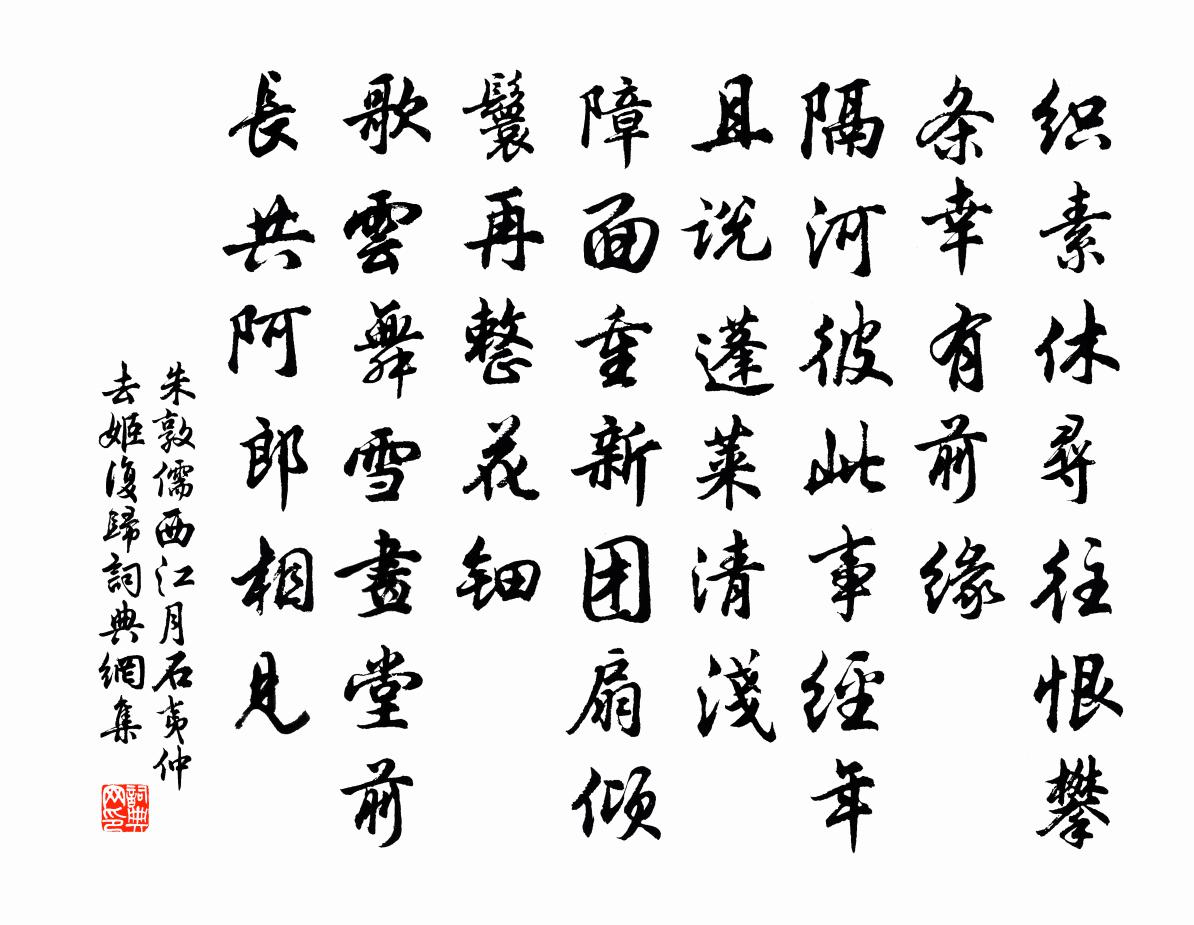 织素休尋往恨攀
条幸有前缘
隔河彼此事経年
且说蓬莱清淺
障面重新团扇倾
鬟再整花钿
歌雲舞雪畫堂前
長共阿郎相見
朱敦儒西江月石夷仲
去姬復歸詞典網集
詞典网印